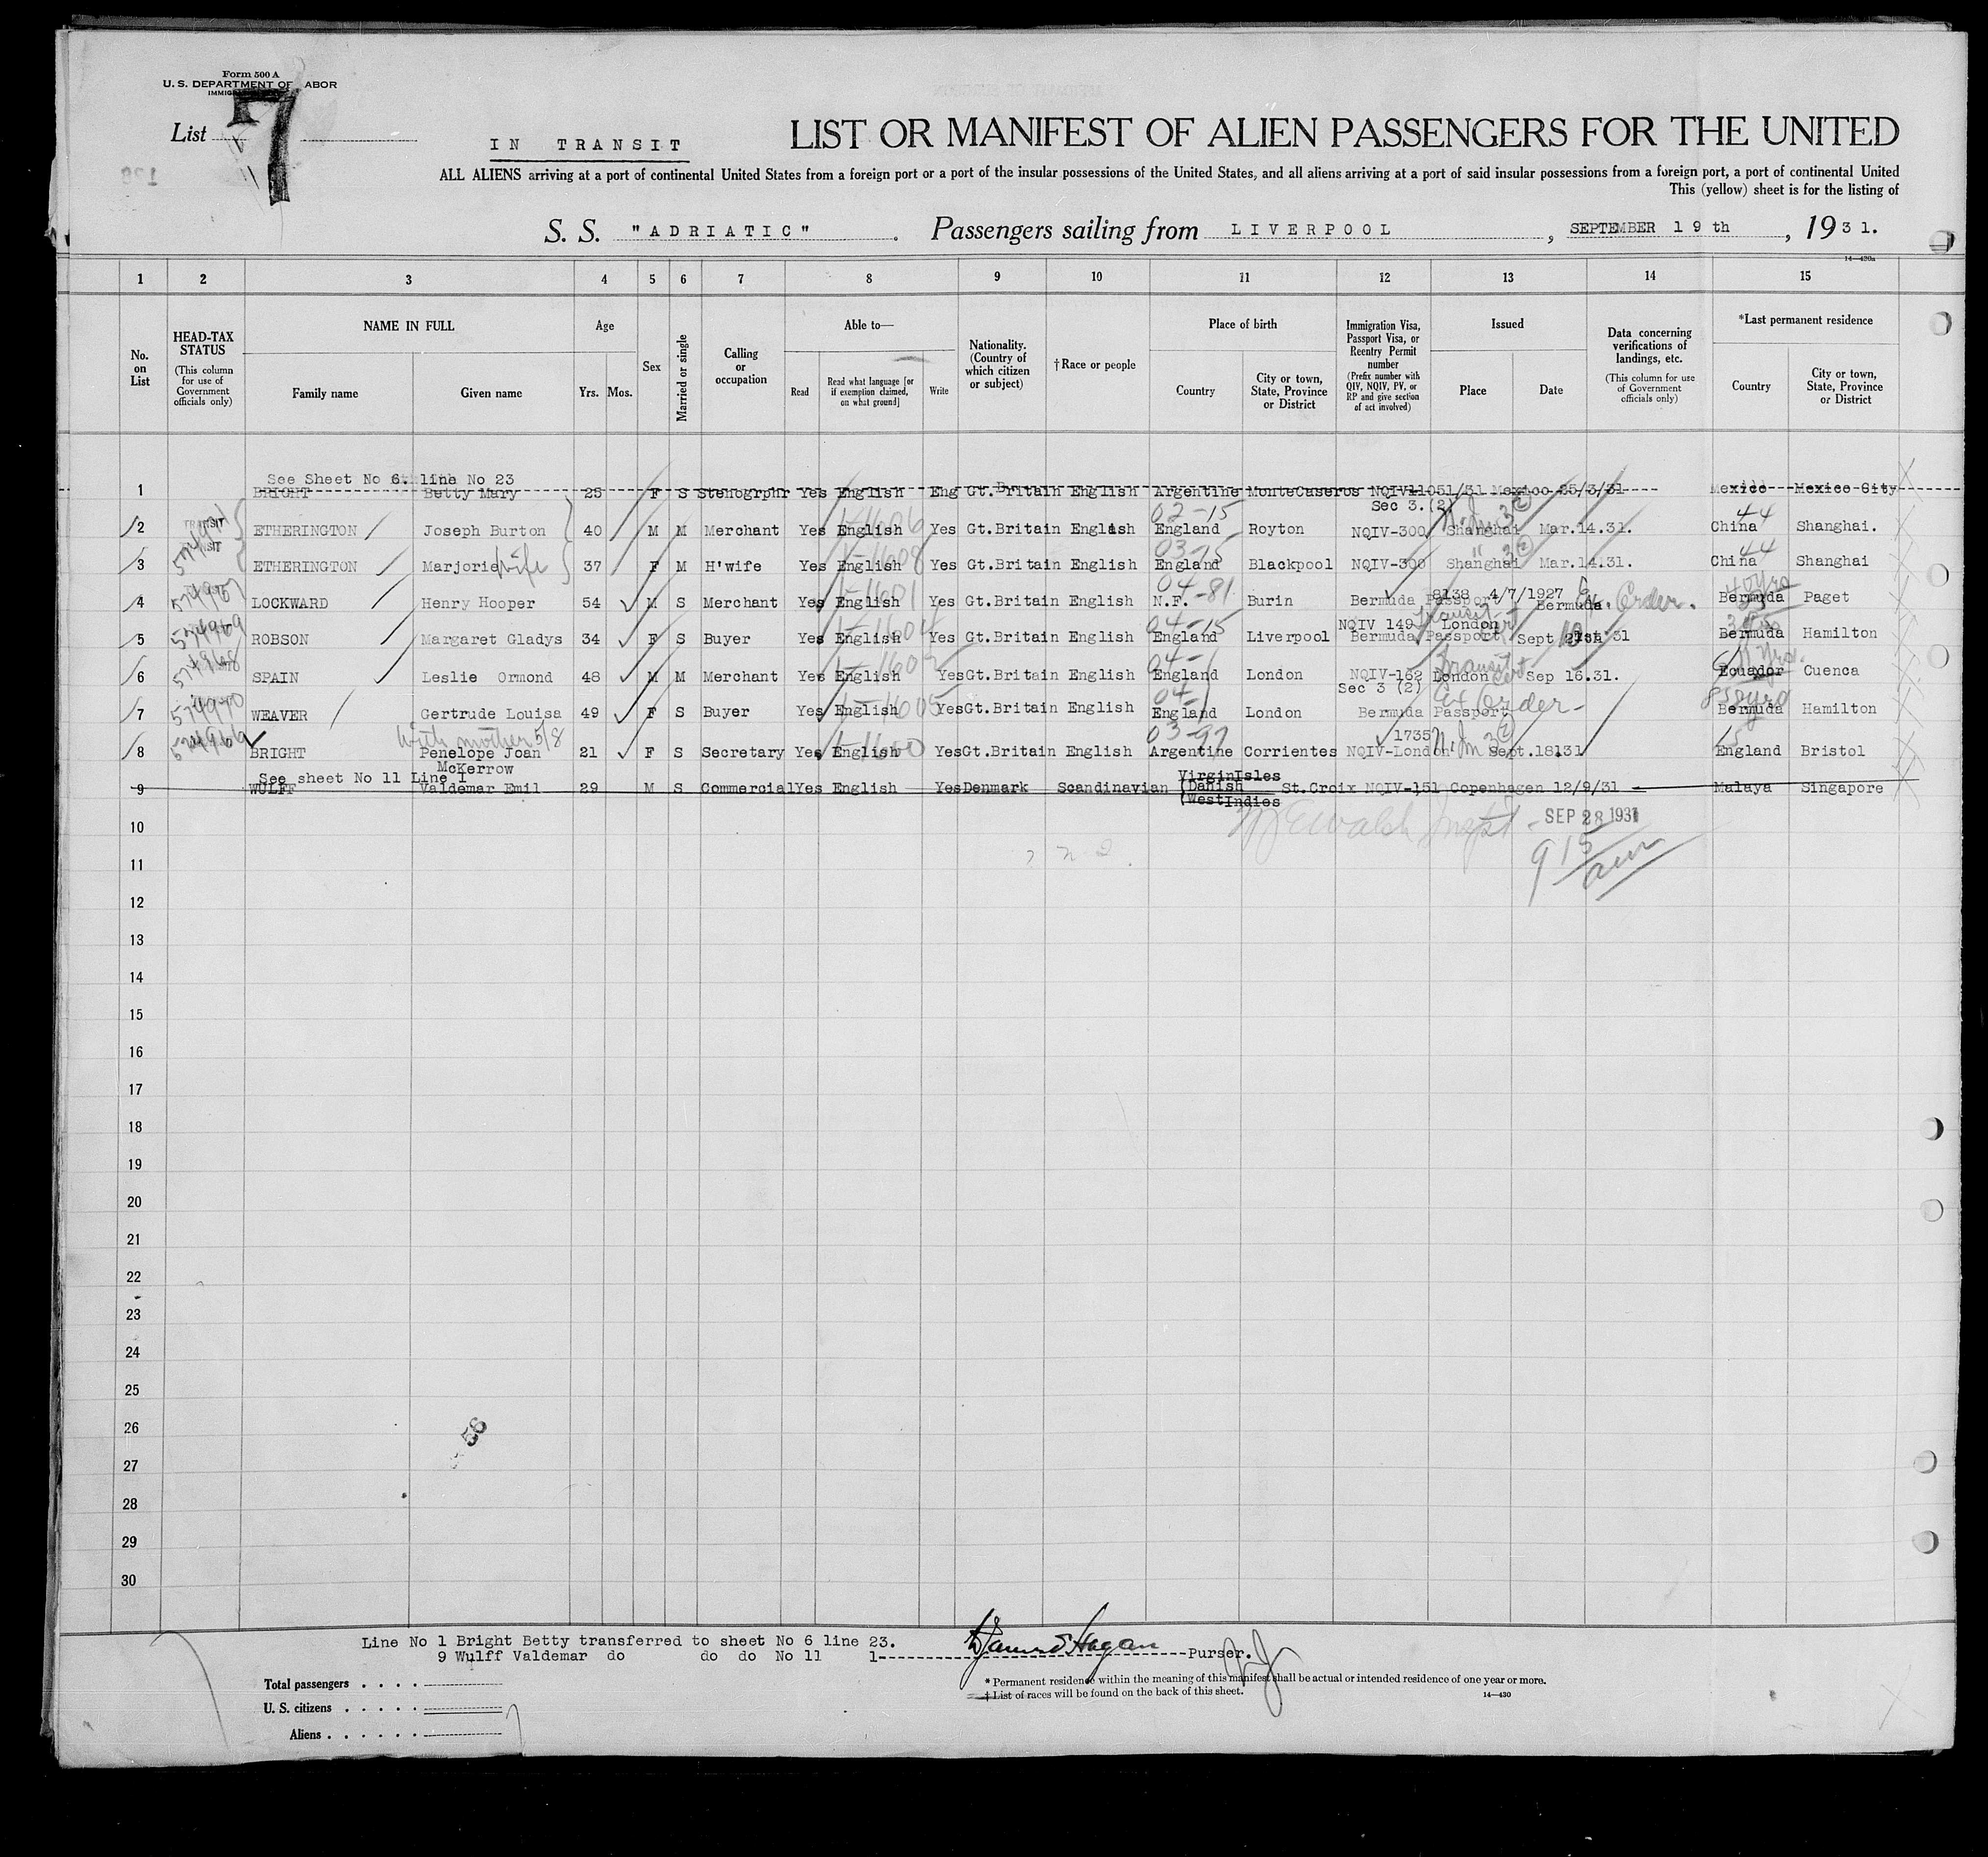 Form 500 A
U. S. DEPARTMENT OF LABOR
List 7
IN TRANSIT
LIST OR MANIFEST OF ALIEN PASSENGERS FOR THE UNITED
ALL ALIENS arriving at a port of continental United States from a foreign port or a port of the insular possessions of the United States, and all aliens arriving at a port of said insular possessions from a foreign port, a port of continental United
This (yellow) sheet is for the listing of
S. S. "ADRIATIC" . Passengers sailing from LIVERPOOL , SEPTEMBER 19th , 1931.
14—420a
1 2 3 4 5 6 7 8 9 10 11 12 13 14 15
No. on List
HEAD-TAX STATUS (This column for use of Government officials only)
NAME IN FULL
Family name Given name
Age
Yrs. Mos.
Sex
Married or single
Calling or occupation
Able to—
Read Read what language [or if exemption claimed, on what ground] Write
Nationality. (Country of which citizen or subject)
†Race or people
Place of birth
Country City or town, State, Province or District
Immigration Visa, Passport Visa, or Reentry Permit number (Prefix number with QIV, NQIV, PV, or RP and give section of act involved)
Issued
Place Date
Data concerning verifications of landings, etc. (This column for use of Government officials only)
*Last permanent residence
Country City or town, State, Province or District
See Sheet No 6. line No 23
1 BRIGHT Betty Mary 25 F S Stenogrphr Yes English Eng Gt.Britain English Argentine MonteCaseros NQIV11051/31 Mexico 25/3/31 Mexico Mexico City
Sec 3.(2)
02-15 44
2 TRANSIT ETHERINGTON Joseph Burton 40 M M Merchant Yes English Yes Gt.Britain English England Royton NQIV-300 Shanghai Mar.14.31. China Shanghai.
03-15 44
3 ETHERINGTON Marjorie wife 37 F M H'wife Yes English Yes Gt.Britain English England Blackpool NQIV-300 Shanghai Mar.14.31. China Shanghai
04-81
8138 4/7/1927
4 LOCKWARD Henry Hooper 54 M S Merchant Yes English Yes Gt.Britain English N.F. Burin Bermuda Passport Bermuda Ex. Order. Bermuda Paget
04-15
NQIV 149 London
5 574969 ROBSON Margaret Gladys 34 F S Buyer Yes English Yes Gt.Britain English England Liverpool Bermuda Passport Sept Bermuda Hamilton
6 574968 SPAIN Leslie Ormond 48 M M Merchant Yes English Yes Gt.Britain English England London NQIV-162 London Sep 16.31. Ecuador Cuenca
Sec 3 (2)
7 574970 WEAVER Gertrude Louisa 49 F S Buyer Yes English Yes Gt.Britain English England London Bermuda Passport Ex Order- Bermuda Hamilton
With mother 5/8
03-97
1735
8 BRIGHT Penelope Joan 21 F S Secretary Yes English Yes Gt.Britain English Argentine Corrientes NQIV-London Sept.18131 England Bristol
McKerrow
See sheet No 11 Line 1
9 WULFF Valdemar Emil 29 M S Commercial Yes English Yes Denmark Scandinavian Virgin Isles (Danish (West Indies St.Croix NQIV-151 Copenhagen 12/9/31 Malaya Singapore
10 SEP 28 1931
11 915 am
12
13
14
15
16
17
18
19
20
21
22
23
24
25
26
27
28
29
30
58
Line No 1 Bright Betty transferred to sheet No 6 line 23.
9 Wulff Valdemar do do do No 11 1
Purser.
Total passengers
U. S. citizens
Aliens
* Permanent residence within the meaning of this manifest shall be actual or intended residence of one year or more.
† List of races will be found on the back of this sheet.
14—430